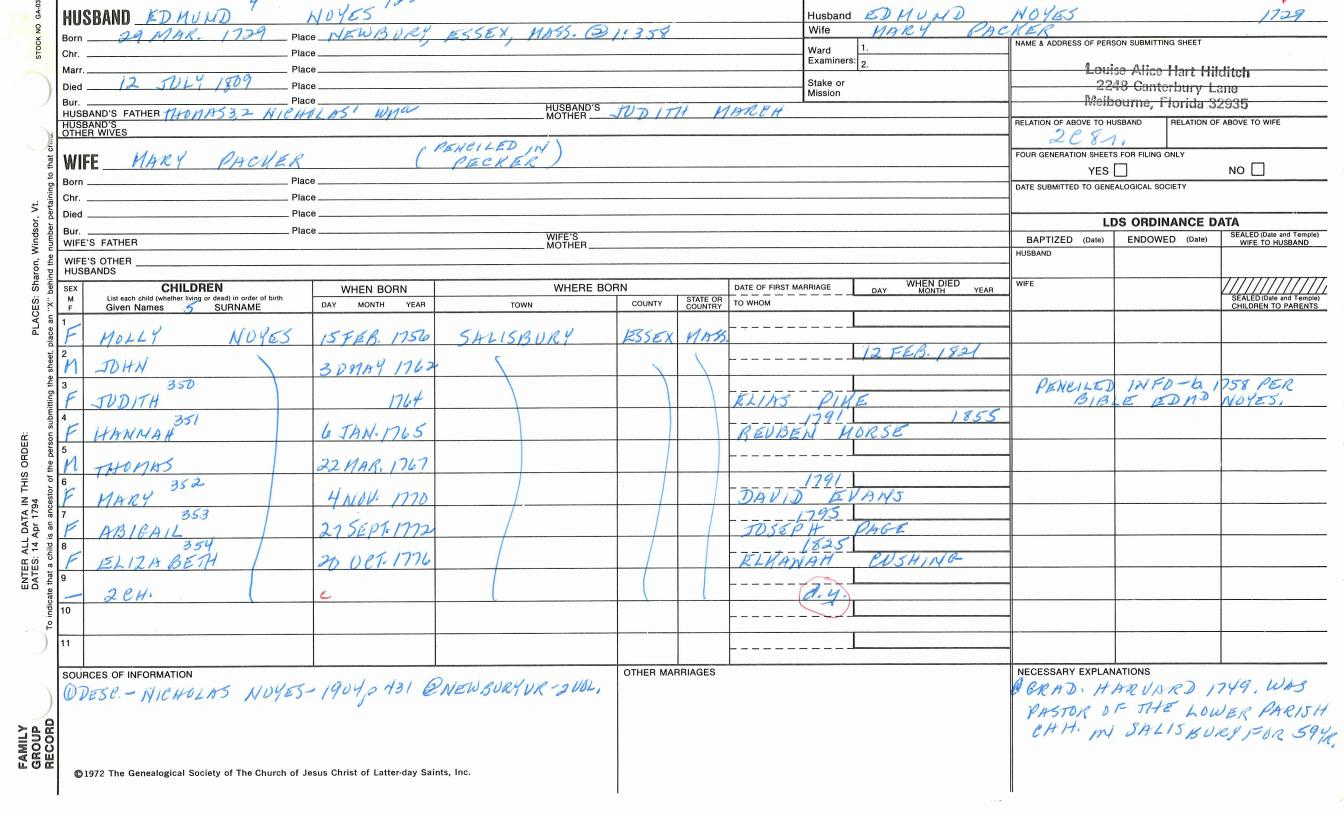 STOCK NO
HUSBAND EDMUND NOYES
Born 29 MAR. 1729 Place NEWBURY, ESSEX, MASS. @ 1:358
Chr. Place
Marr. Place
Died 12 JULY 1809 Place
Bur. Place
HUSBAND'S FATHER THOMAS3,2 NICHOLAS' WMᵃ HUSBAND'S MOTHER JUDITH MARCH
HUSBAND'S OTHER WIVES
WIFE MARY PACKER (PENCILED IN PECKER)
Born Place
Chr. Place
Died Place
Bur. Place
WIFE'S FATHER WIFE'S MOTHER
WIFE'S OTHER HUSBANDS
Husband EDMUND NOYES 1729
Wife MARY PACKER
Ward Examiners: 1.
2.
Stake or Mission
NAME & ADDRESS OF PERSON SUBMITTING SHEET
Louise Alice Hart Hilditch
2248 Canterbury Lane
Melbourne, Florida 32935
RELATION OF ABOVE TO HUSBAND RELATION OF ABOVE TO WIFE
2C8r.
FOUR GENERATION SHEETS FOR FILING ONLY
YES NO
DATE SUBMITTED TO GENEALOGICAL SOCIETY
LDS ORDINANCE DATA
BAPTIZED (Date) ENDOWED (Date) SEALED (Date and Temple) WIFE TO HUSBAND
HUSBAND
WIFE
SEALED (Date and Temple) CHILDREN TO PARENTS
SEX M F CHILDREN WHEN BORN WHERE BORN DATE OF FIRST MARRIAGE WHEN DIED
List each child (whether living or dead) in order of birth
Given Names 5 SURNAME DAY MONTH YEAR TOWN COUNTY STATE OR COUNTRY TO WHOM DAY MONTH YEAR
1 F MOLLY NOYES 15 FEB. 1756 SALISBURY ESSEX MASS.
2 M JOHN 30 MAY 1762 12 FEB. 1821
3 F JUDITH 350 1764 ELIAS PIKE
PENCILED INFO-b 1758 PER
BIBLE EDMᴰ NOYES.
4 F HANNAH 351 6 JAN. 1765 1791 REUBEN MORSE 1855
5 M THOMAS 22 MAR. 1767
6 F MARY 352 4 NOV. 1770 1791 DAVID EVANS
7 F ABIGAIL 353 27 SEPT. 1772 1795 JOSEPH PAGE
8 F ELIZABETH 354 20 OCT. 1776 1825 ELKANAH CUSHING
9 — 2 CH. c d.y.
10
11
SOURCES OF INFORMATION
① DESC.-NICHOLAS NOYES-1904, p 431 @ NEWBURY VR-2 VOL.
OTHER MARRIAGES
NECESSARY EXPLANATIONS
GRAD. HARVARD 1749. WAS
PASTOR OF THE LOWER PARISH
CHH. IN SALISBURY FOR 59 YR.
©1972 The Genealogical Society of The Church of Jesus Christ of Latter-day Saints, Inc.
PLACES: Sharon, Windsor, Vt.
ENTER ALL DATA IN THIS ORDER:
DATES: 14 Apr 1794
To indicate that a child is an ancestor of the person submitting the sheet, place an "X" behind the number pertaining to that
FAMILY
GROUP
RECORD